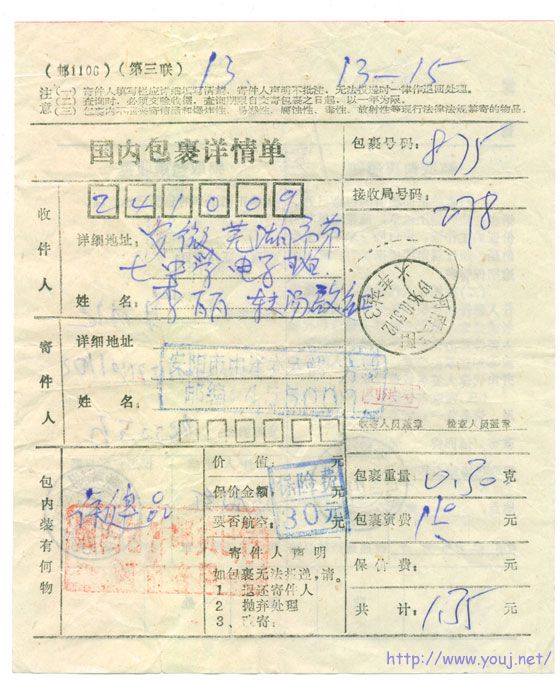 (邮1106)(第三联) 13 13-15
注(一)寄件人填写栏应详细填写清楚，寄件人声明不批注，无法投递时一律作退回处理。
(二)查询时，必须交验收据，查询期限自交寄包裹之日起，以一年为限。
意(三)包裹内不准夹寄信函和爆炸性、易燃性、腐蚀性、毒性、放射性等现行法律法规禁寄的物品。
国内包裹详情单
包裹号码: 875
接收局号码: 278
收件人
241009
详细地址: 安徽芜湖市第
七中学电子班
姓 名: 李丽 转
寄件人
详细地址
安阳市
邮编 455000
姓 名:
收寄人员盖章 检查人员盖章
包内装有何物
保健品
价 值: 元
保价金额: 元
要否航空:
保险费
30元
寄件人声明
如包裹无法投递，请。
1 退还寄件人
2 抛弃处理
3、改寄:
包裹重量 0.30 克
包裹资费 元
保 价 费: 元
共 计: 1.35 元
http://www.youj.net/